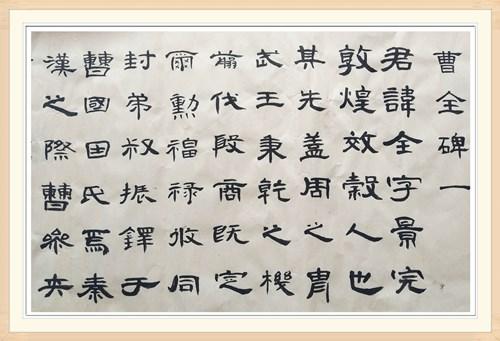 曹全碑一
君諱全字景完
敦煌效穀人也
其先蓋周之胄
武王秉乾之機
翦伐殷商既定
爾勳福祿攸同
封弟叔振鐸于
曹國因氏焉秦
漢之際曹參夾